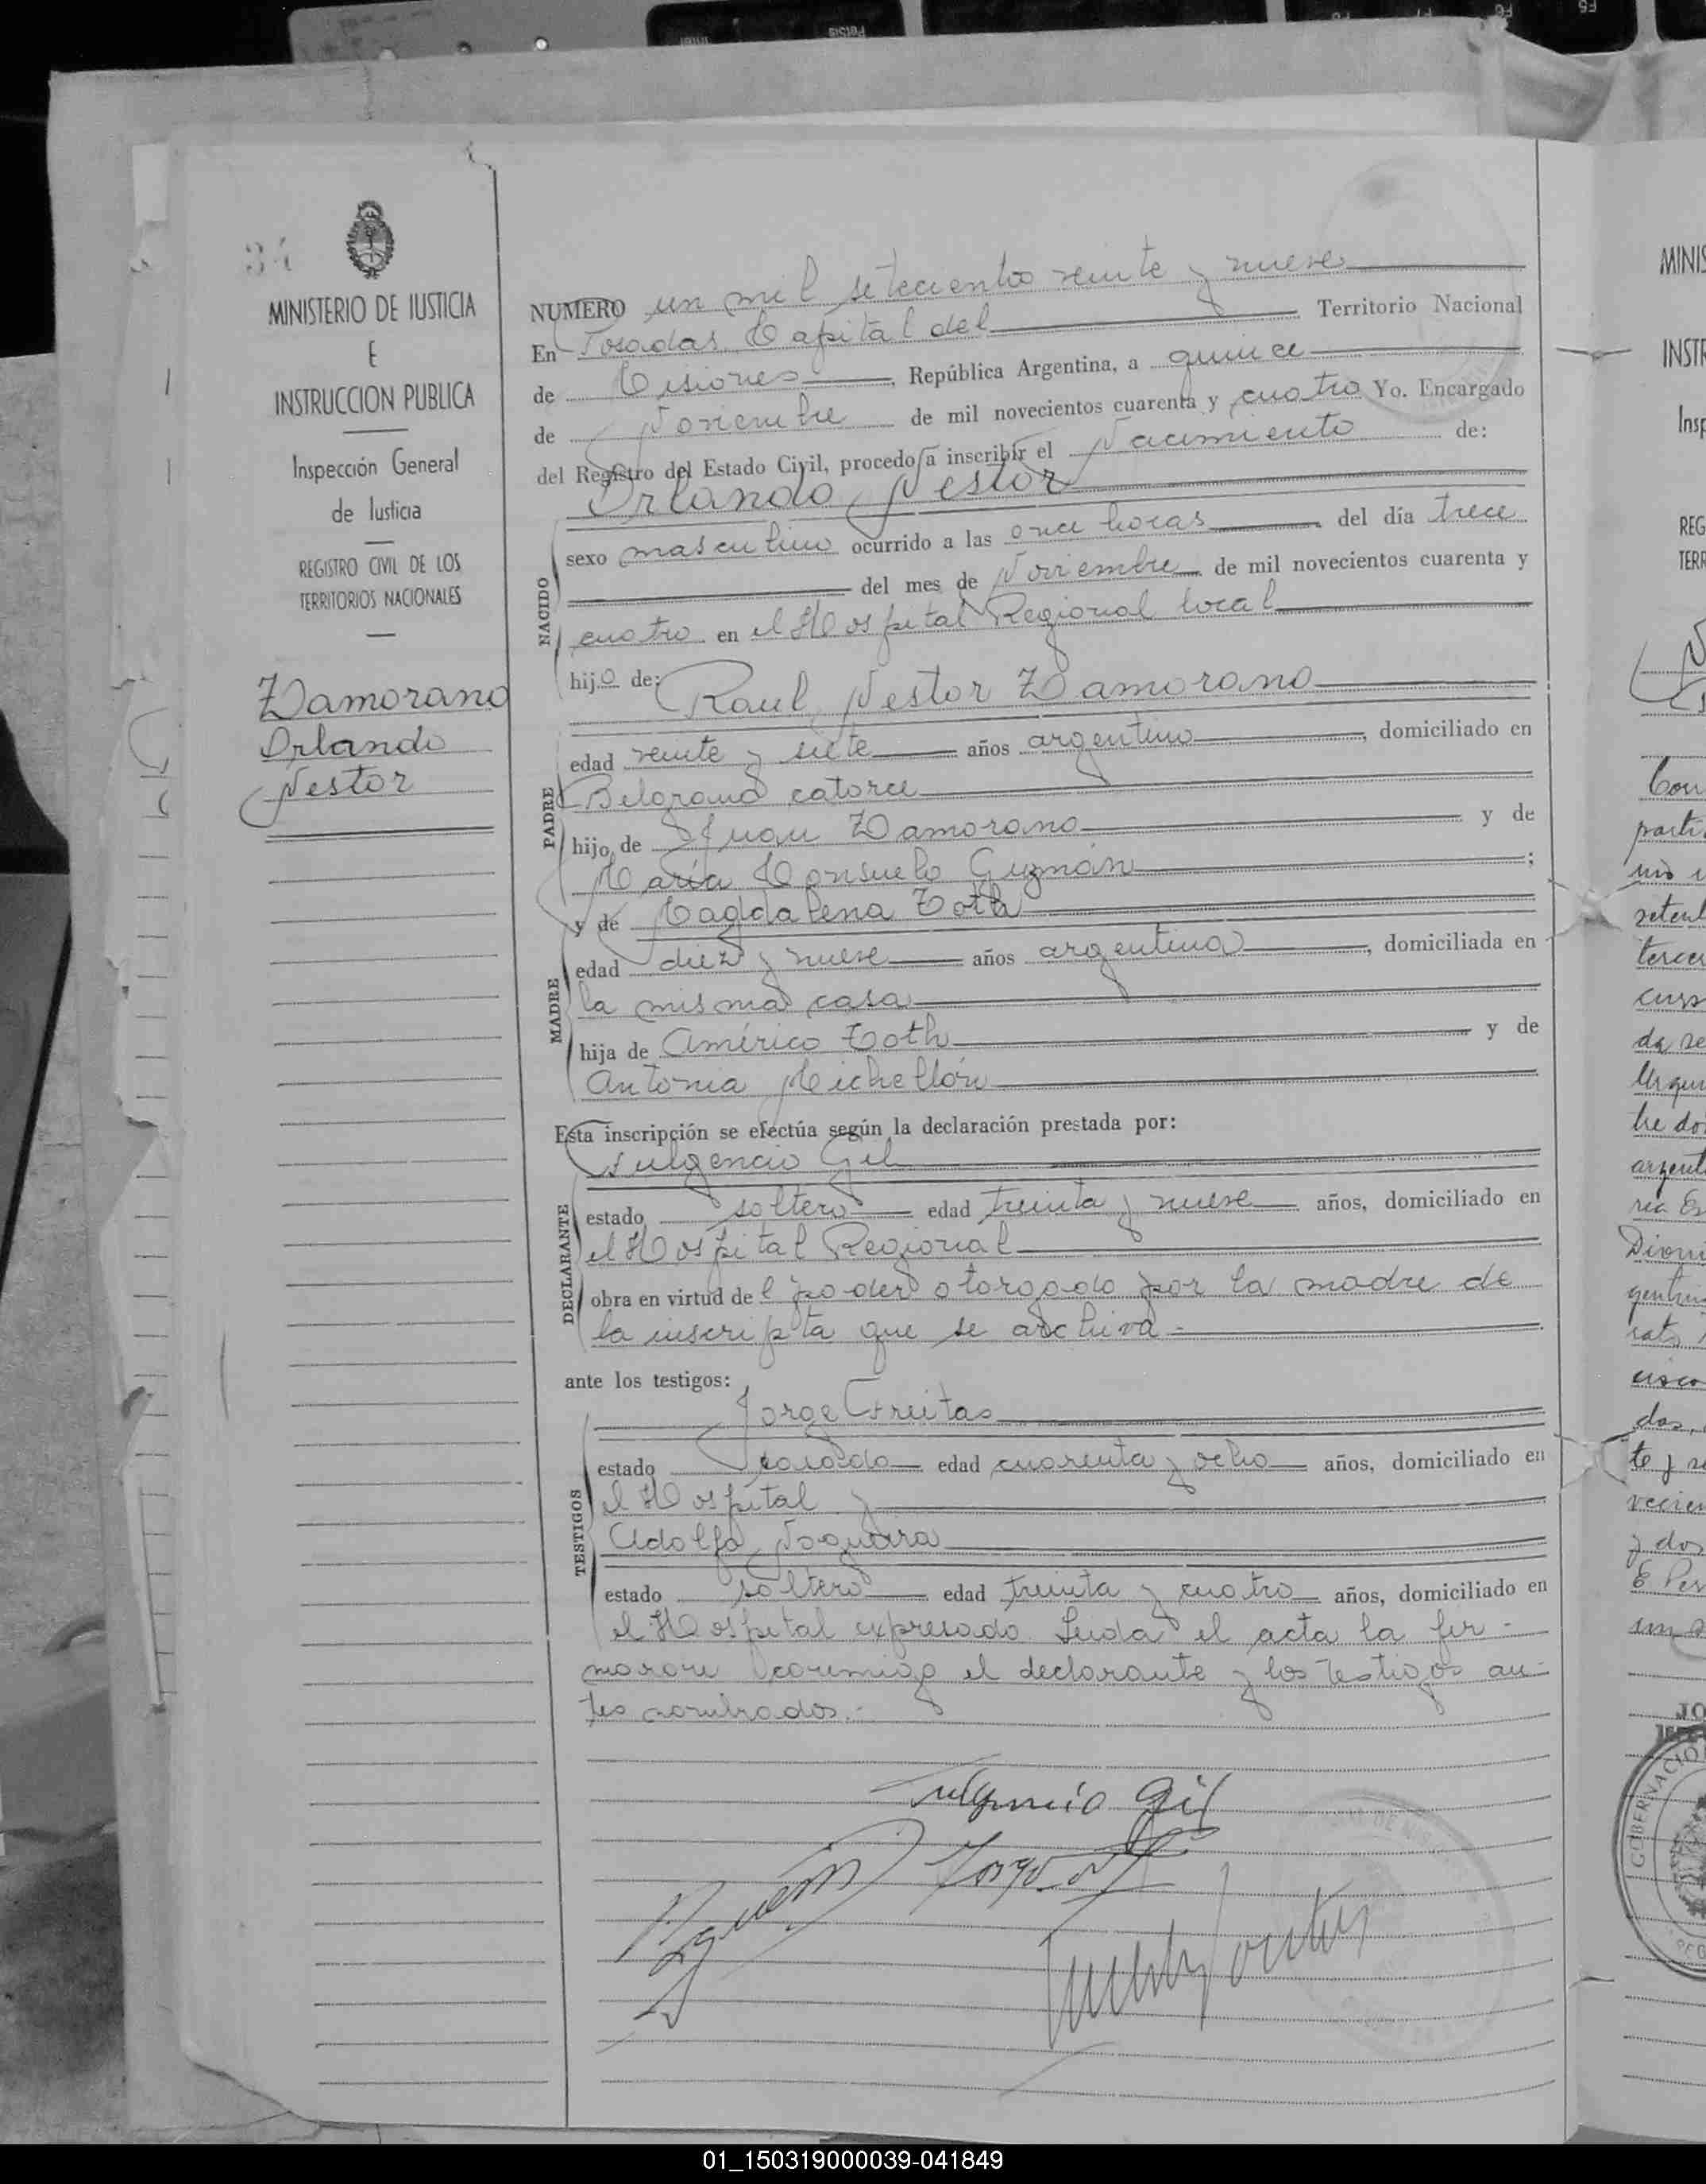 MINISTERIO DE JUSTICIA
E
INSTRUCCION PUBLICA
Inspección General
de Justicia
REGISTRO CIVIL DE LOS
TERRITORIOS NACIONALES
Zamorano
Orlando
Nestor
NUMERO un mil setecientos veinte y nueve
En Posadas Capital del Territorio Nacional
de Misiones, República Argentina, a quince
de Noviembre de mil novecientos cuarenta y cuatro Yo. Encargado
del Registro del Estado Civil, procedo a inscribir el Nacimiento de:
Orlando Nestor
NACIDO
sexo masculino ocurrido a las once horas del día trece
del mes de Noviembre de mil novecientos cuarenta y
cuatro en el Hospital Regional local
hijo de: Raul Nestor Zamorano
PADRE
edad veinte y siete años argentino, domiciliado en
Belgrano catorce
hijo de Juan Zamorano y de
María Consuelo Guzmán;
y de Magdalena Toth
MADRE
edad diez y nueve años argentina, domiciliada en
la misma casa
hija de Américo Toth y de
Antonia Michellón
Esta inscripción se efectúa según la declaración prestada por:
Fulgencio Gil
DECLARANTE
estado soltero edad treinta y nueve años, domiciliado en
el Hospital Regional
obra en virtud del poder otorgado por la madre de
la inscripta que se archiva.-
ante los testigos:
Jorge Freitas
TESTIGOS
estado casado edad cuarenta y ocho años, domiciliado en
el Hospital y
Adolfo
estado soltero edad treinta y cuatro años, domiciliado en
el Hospital expresado. Leida el acta la fir-
maron conmigo el declarante y los testigos an-
tes nombrados.-
Fulgencio Gil
01_150319000039-041849